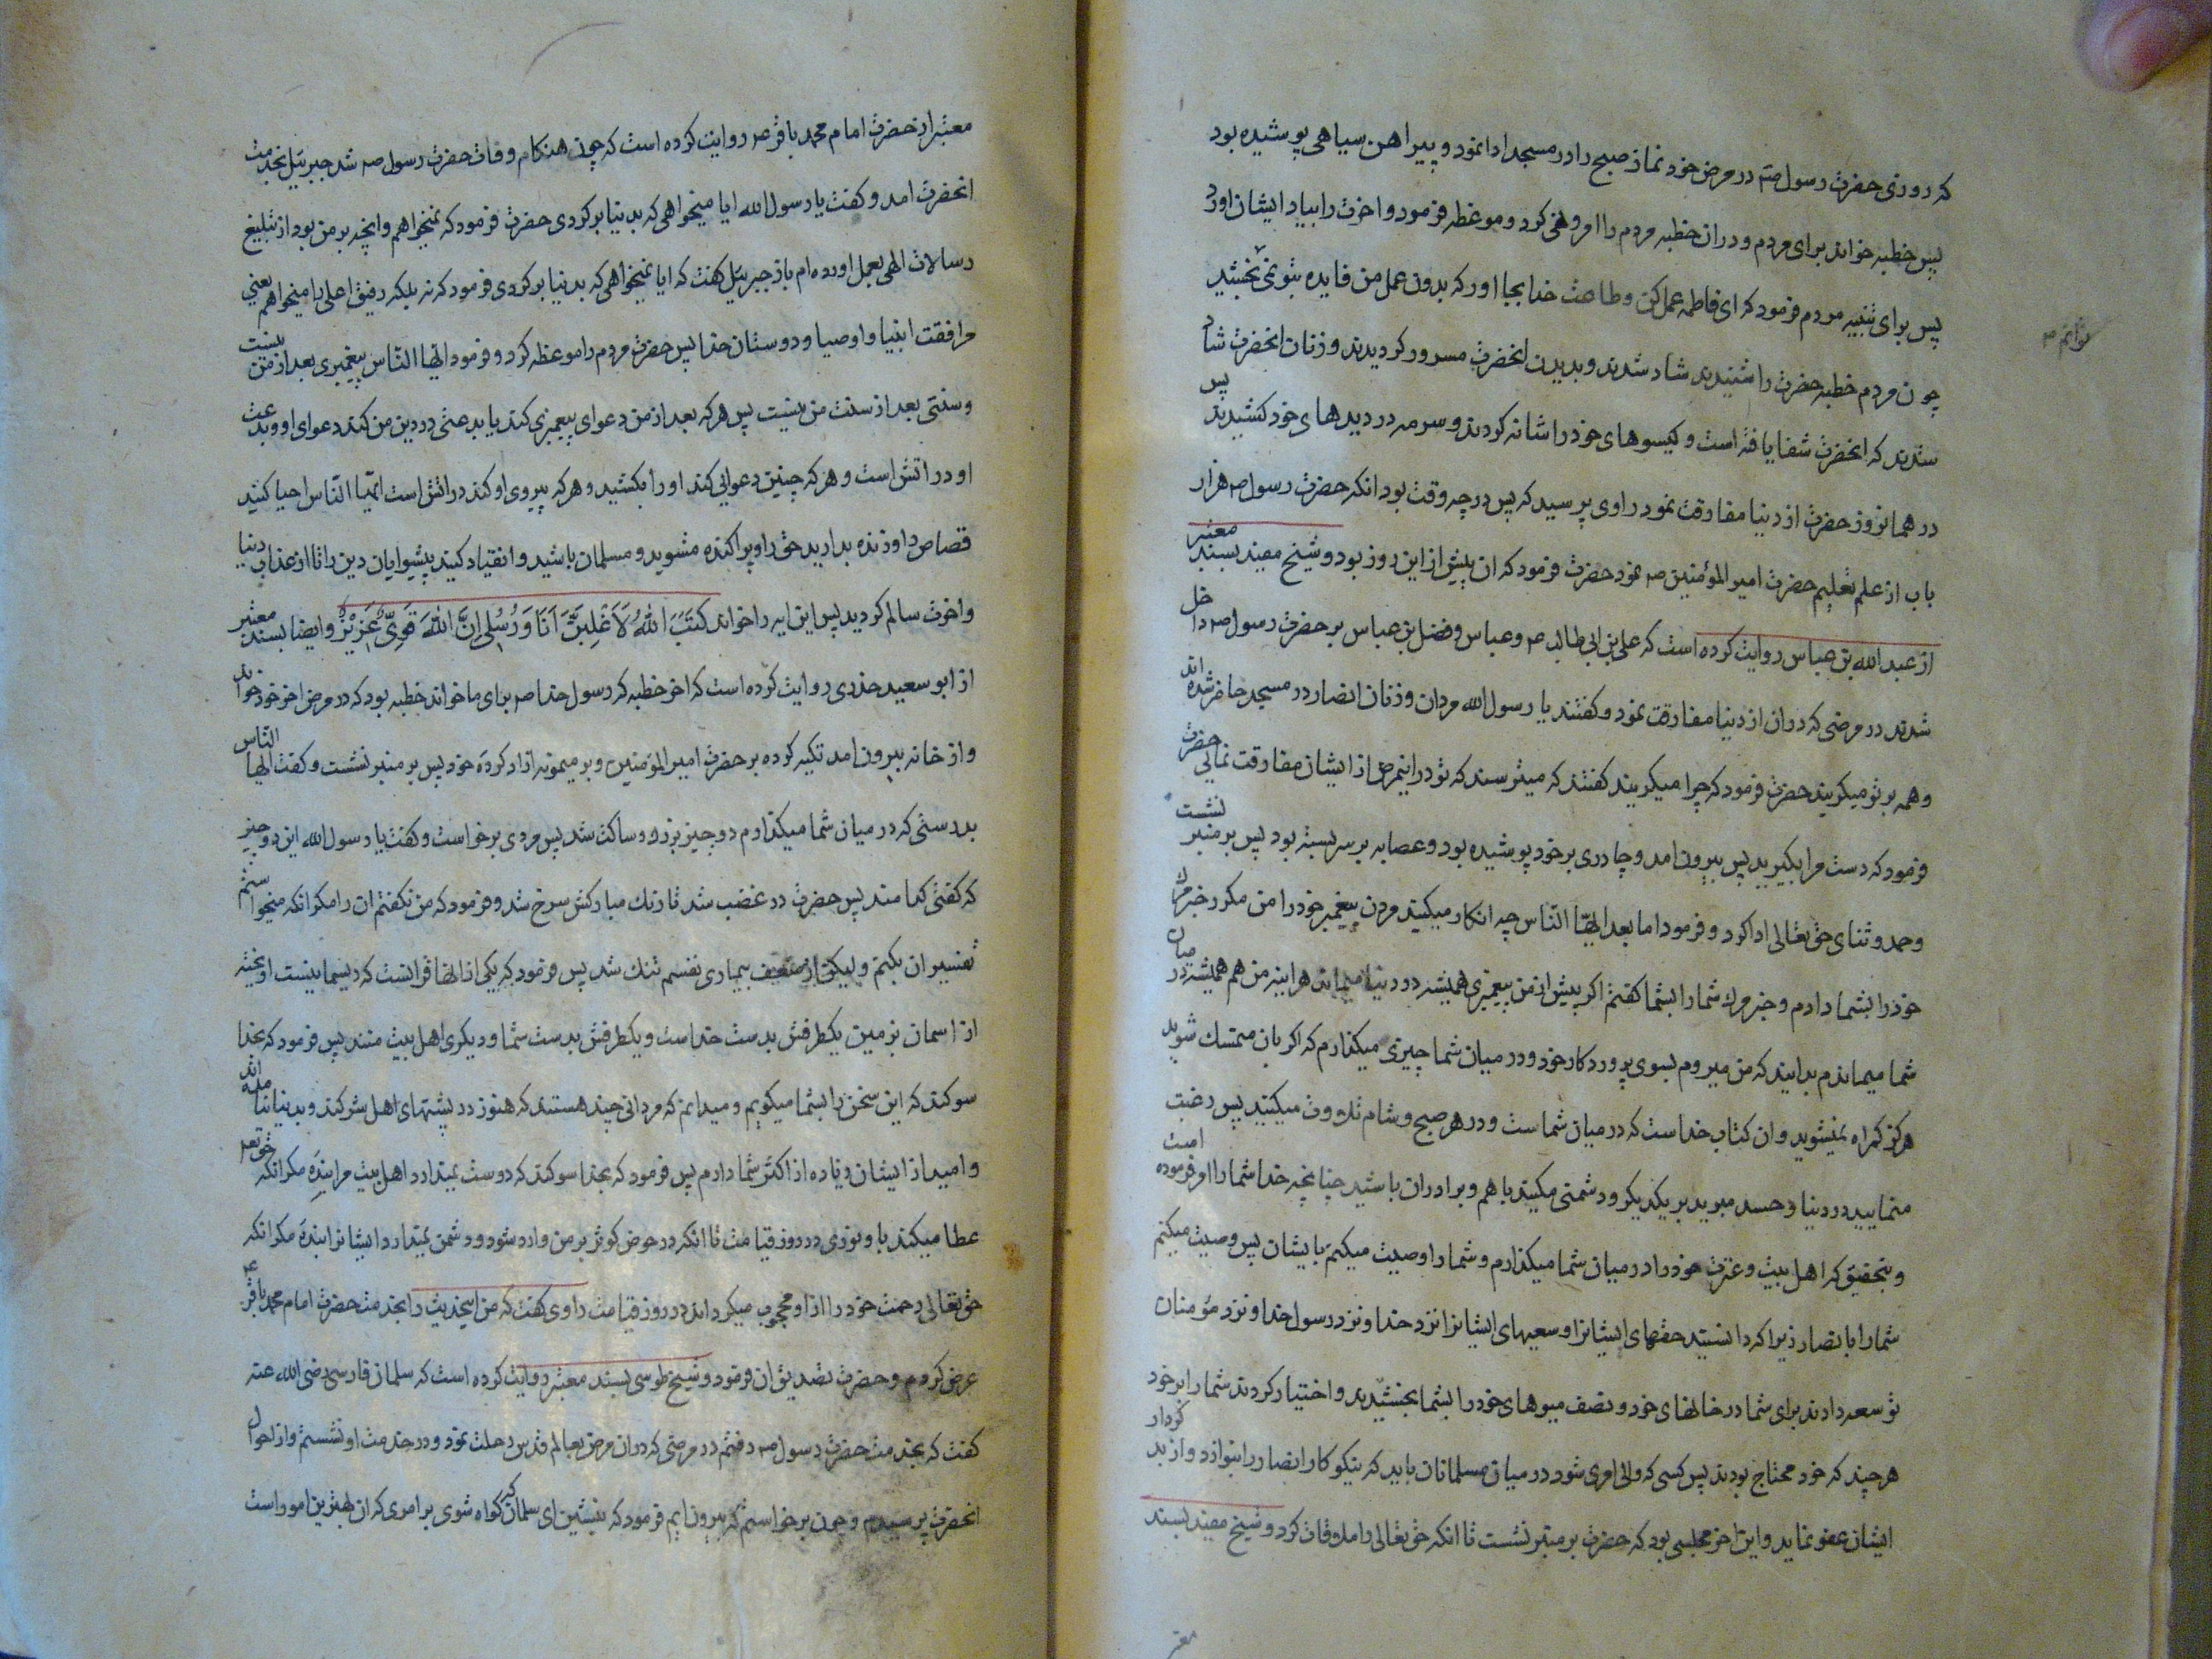 که روزی حضرت رسول صم در مرض خود نماز صبح را در مسجد ادا نمود و پیراهن سیاهی پوشیده بود
پس خطبه خواند برای مردم و دران خطبه مردم را امر و نهی کرد و موعظه فرمود و اخرت را بیاد ایشان اورد
پس برای تنبیه مردم فرمود که ای فاطمه عمل کن و طاعت خدا بجا اور که بدون عمل من فایده بتو نمی بخشد
چون مردم خطبه حضرت را شنیدند شاد شدند و بدیدن انحضرت مسرور کردیدند و زنان انحضرت شاد
شدند که انحضرت شفا یافته است و کیسوهای خود را شانه کردند و سرمه در دیدهای خود کشیدند پس
در همانروز حضرت از دنیا مفارقت نمود راوی پرسید که پس در چه وقت بود انکه حضرت رسول ص هزار
باب از علم تعلیم حضرت امیر المؤمنین ص نمود حضرت فرمود که ان پیش از این روز بود و شیخ مفید بسند معتبر
از عبد الله بن عباس روایت کرده است که علی بن ابی طالب ص و عباس و فضل بن عباس بر حضرت رسول ص داخل
شدند در مرضی که دران از دنیا مفارقت نمود و کفتند یا رسول الله مردان و زنان انصار در مسجد حاضر شده اند
و همه بر تو میکریند حضرت فرمود که چرا میکریند کفتند که میترسند که تو در اینمرض از ایشان مفارقت نمائی حضرت
فرمود که دست مرا بکیرید پس بیرون امد و چادری بر خود پوشیده بود و عصابه بر سر بسته بود پس بر منبر نشست
و حمد و ثنای حق تعالی ادا کرد و فرمود اما بعد ایها الناس چه انکار میکنید مردن پیغمبر خود را من مکرر خبر مرک
خود را بشما دادم و خبر مرک شما را بشما کفتم اکر پیش از من پیغمبری همیشه در دنیا میماند هراینه من هم همیشه در میان
شما میماندم بدانید که من میروم بسوی پروردکار خود و در میان شما چیزی میکذارم که اکر بان متمسک شوید
هرکز کمراه نمیشوید و ان کتاب خداست که در میان شماست و در هر صبح و شام تلاوت میکنید پس رغبت
منمایید در دنیا و حسد مبرید بر یکدیکر و دشمنی مکنید باهم و برادران باشید چنانچه خدا شما را امر فرموده است
و بتحقیق که اهل بیت و عترت خود را در میان شما میکذارم و شما را وصیت میکنم بایشان پس وصیت میکنم
شما را بانصار زیرا که دانستید حقهای ایشانرا و سعیهای ایشانرا نزد خدا و نزد رسول خدا و نزد مؤمنان
توسعه دادند برای شما در خانهای خود و نصف میوهای خود را بشما بخشیدند و اختیار کردند شما را بر خود
هر چند که خود محتاج بودند پس کسی که والی امری شود در میان مسلمانان باید که نیکو کار انصار را بنوازد و از بد کردار
ایشان عفو نماید و این اخر مجلسی بود که حضرت بر منبر نشست تا انکه حق تعالی را ملاقات کرد و شیخ مفید بسند
معتبر
معتبر از حضرت امام محمد باقر ص روایت کرده است که چون هنکام وفات حضرت رسول ص شد جبرئیل بخدمت
انحضرت امد و کفت یا رسول الله ایا میخواهی که بدنیا برکردی حضرت فرمود که نمیخواهم و انچه بر من بود از تبلیغ
رسالات الهی بعمل اورده ام باز جبرئیل کفت که ایا نمیخواهی که بدنیا برکردی فرمود که نه بلکه رفیق اعلی را میخواهم یعنی
مرافقت انبیا و اوصیا و دوستان خدا پس حضرت مردم را موعظه کرد و فرمود ایها الناس پیغمبری بعد از من نیست
و سنتی بعد از سنت من نیست پس هر که بعد از من دعوای پیغمبری کند یا بدعتی در دین من کند دعوای او و بدعت
او در اتش است و هر که چنین دعوایی کند او را بکشید و هر که پیروی او کند در اتش است ایها الناس احیا کنید
قصاص را و زنده بدارید حق را و پراکنده مشوید و مسلمان باشید و انقیاد کنید پیشوایان دین را تا از عذاب دنیا
و اخرت سالم کردید پس این ایه را خواند کَتَبَ اللهُ لَأَغْلِبَنَّ أَنَا وَرُسُلِی إِنَّ اللهَ قَوِیٌّ عَزِیزٌ و ایضا بسند معتبر
از ابو سعید خدری روایت کرده است که اخر خطبه که رسول خدا ص برای ما خواند خطبه بود که در مرض اخر خود خواند
و از خانه بیرون امد تکیه کرده بر حضرت امیر المؤمنین و بر میمونه ازاد کرده خود پس بر منبر نشست و کفت ایها الناس
بدرستی که در میان شما میکذارم دو چیز بزرک و ساکت شد پس مردی برخواست و کفت یا رسول الله این دو چیز
که کفتی کدامند پس حضرت در غضب شد تا رنک مبارکش سرخ شد و فرمود که من نکفتم ان را مکر انکه میخواستم
تفسیر ان بکنم و لیکن از ضعف بیماری نفسم تنک شد پس فرمود که یکی از انها قرانست که ریسمانیست اویخته
از اسمان بزمین یکطرفش بدست خداست و یکطرفش بدست شما و دیکری اهل بیت منند پس فرمود که بخدا
سوکند که این سخن را بشما میکویم و میدانم که مردانی چند هستند که هنوز در پشتهای اهل شرکند و بدنیا نیامده اند
و امید از ایشان زیاده از اکثر شما دارم پس فرمود که بخدا سوکند که دوست نمیدارد اهل بیت مرا بندهٔ مکر انکه حق تعم
عطا میکند باو نوری در روز قیامت تا انکه در حوض کوثر بر من وارد شود و دشمن نمیدارد ایشانرا بندهٔ مکر انکه
حق تعالی رحمت خود را از او محجوب میکرداند در روز قیامت راوی کفت که من اینحدیث را بخدمت حضرت امام محمد باقر ع
عرض کردم و حضرت تصدیق ان فرمود و شیخ طوسی بسند معتبر روایت کرده است که سلمان فارسی رضی الله عنه
کفت که بخدمت حضرت رسول ص رفتم در مرضی که دران مرض بعالم قدس رحلت نمود و در خدمت او نشستم و از احوال
انحضرت پرسیدم و چون برخواستم که بیرون ایم فرمود که بنشین ای سلمان که کواه شوی بر امری که ان بهترین امور است